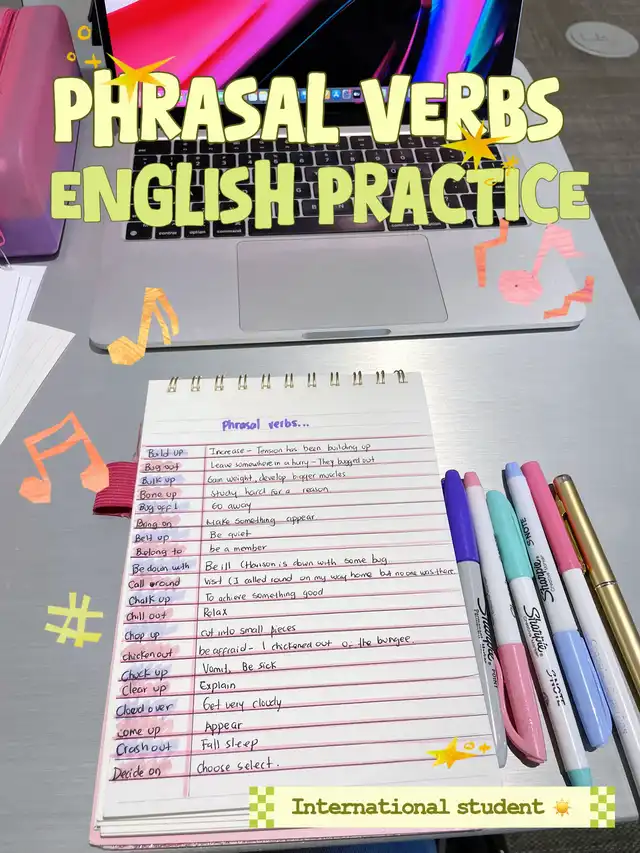 PHRASAL VERBS
ENGLISH PRACTICE
Phrasal verbs...
Build up Increase - Tension has been building up
Bug out Leave somewhere in a hurry - They bugged out
Bulk up Gain weight, develop bigger muscles
Bone up Study hard for a reason
Bug off! Go away
Bring on Make something appear
Belt up Be quiet
Belong to be a member
Be down with Be ill (Harison is down with some bug
Call around Visit (I called round on my way home but no one was there
Chalk up To achieve something good
Chill out Relax
Chop up cut into small pieces
chicken out be affraid - I chickened out of the bungee.
Chuck up Vomit, Be sick
Clear up Explain
Cloud over Get very cloudy
come up Appear
Crash out Fall sleep
Decide on Choose select.
control option command command
Sharpie
Sharpie
S·NOTE
S·NOTE
#
International student